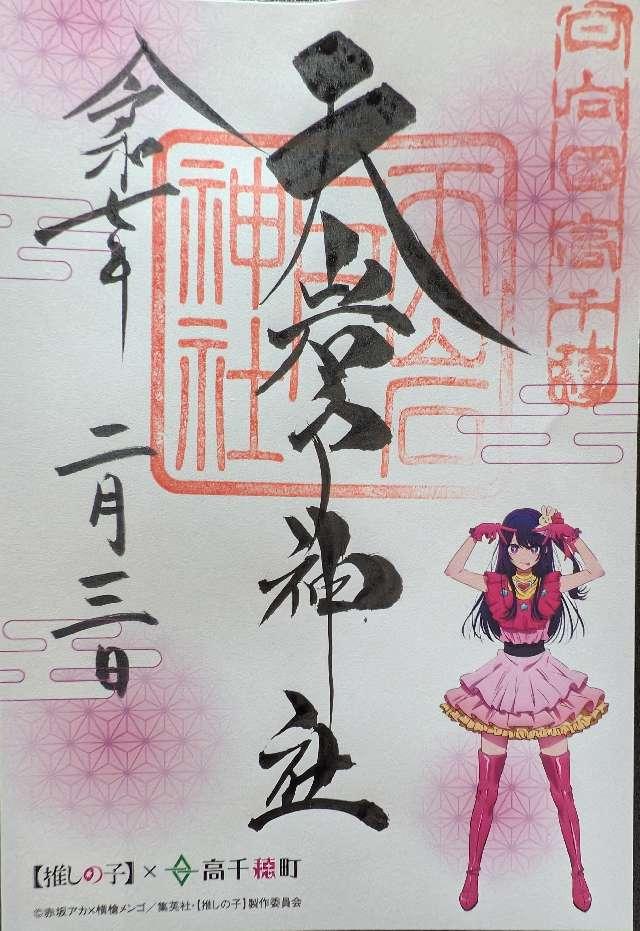 日向國高千穂
天岩戸神社
天岩戸
神社
令和七年
二月三日
【推しの子】×高千穂町
©赤坂アカ×横槍メンゴ／集英社・【推しの子】製作委員会